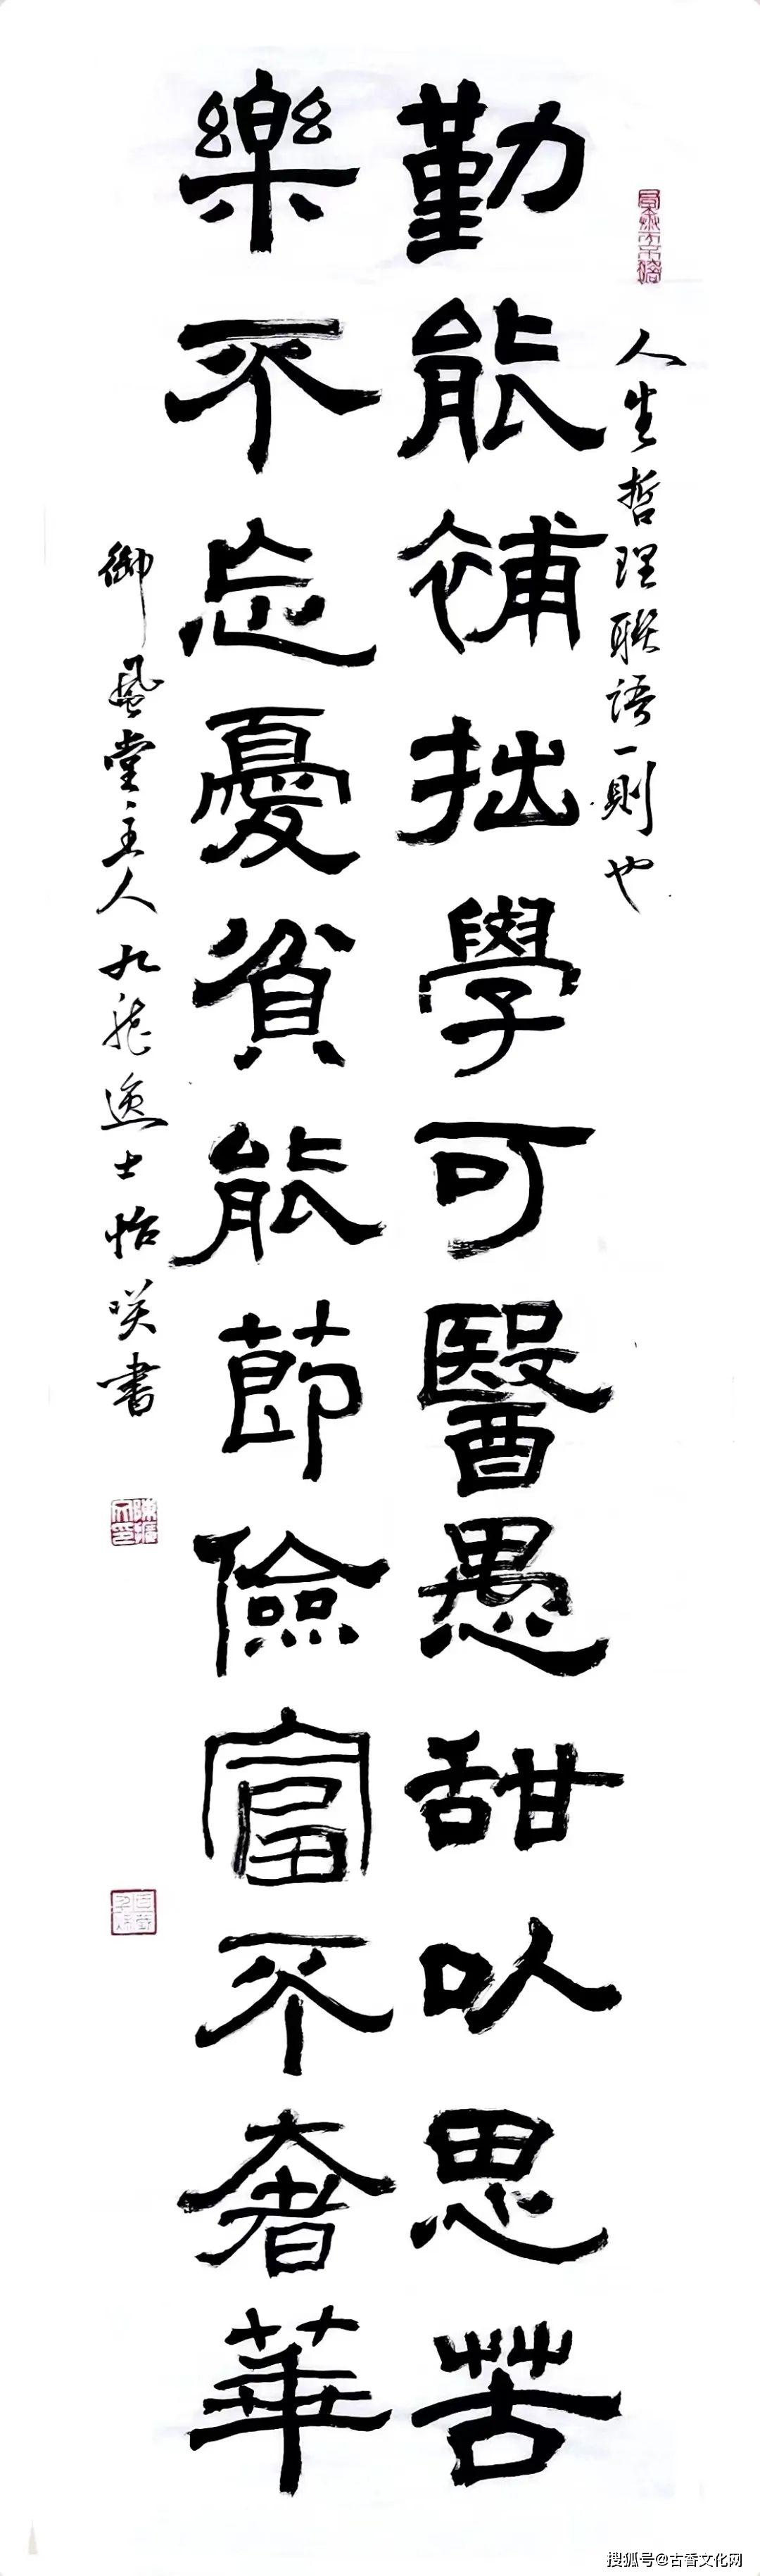 人生哲理联语一则也
勤能補拙學可醫愚甜以思苦
樂不忘憂貧能節儉富不奢華
御風堂主人九龍逸士怡笑书
搜狐号@古香文化网